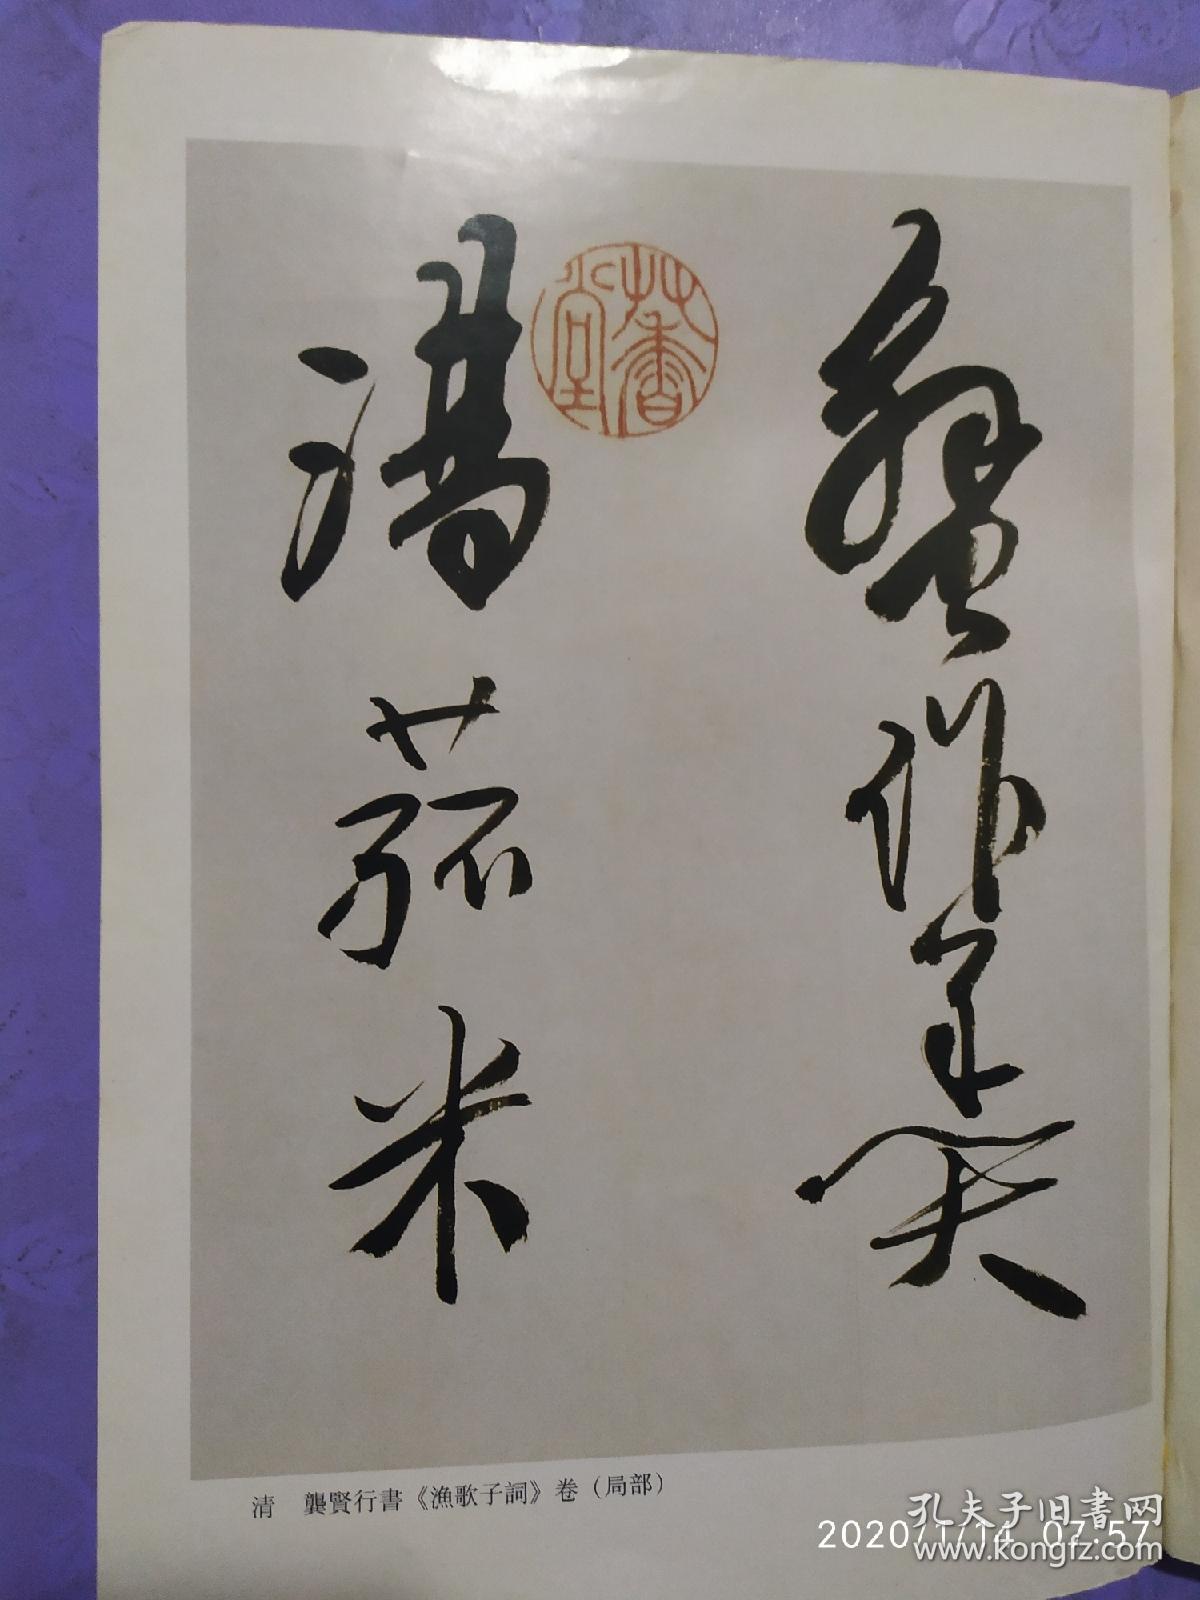 蟹作羹
湯菰米
草香堂
清　龔賢行書《漁歌子詞》卷（局部）
孔夫子旧書网
2020/1/14 07:57
www.kongfz.com